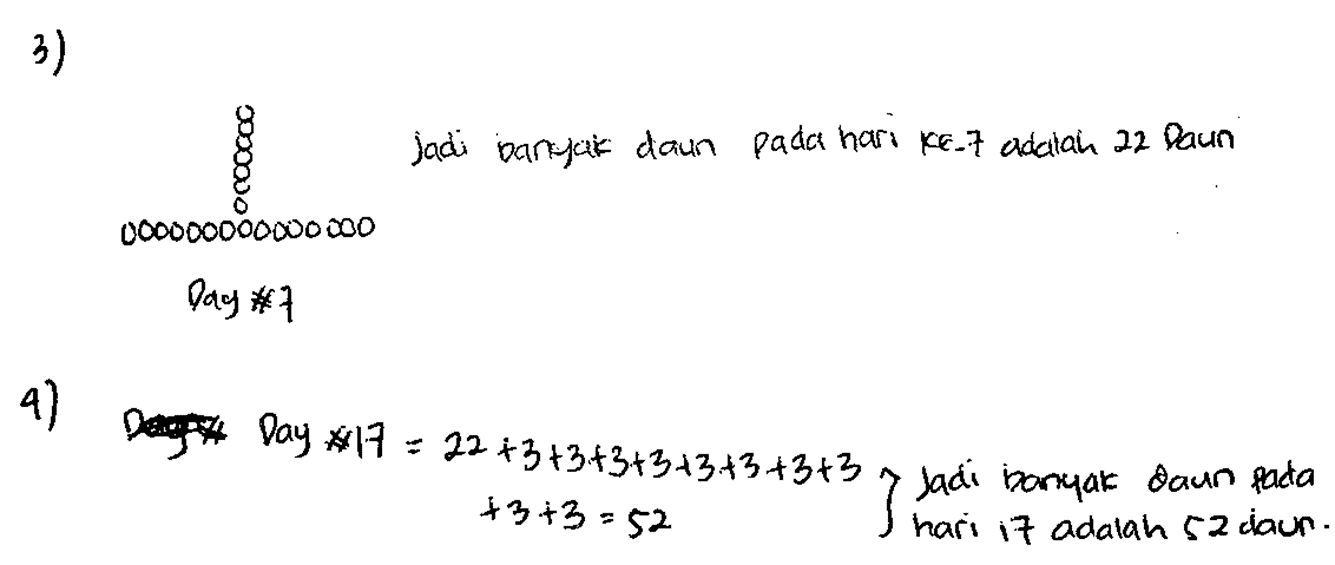 3)
Jadi banyak daun pada hari ke-7 adalah 22 Daun
Day #7
4)
Day #17 = 22 +3+3+3+3+3+3+3+3
+3+3 = 52
Jadi banyak daun pada
hari 17 adalah 52 daun.